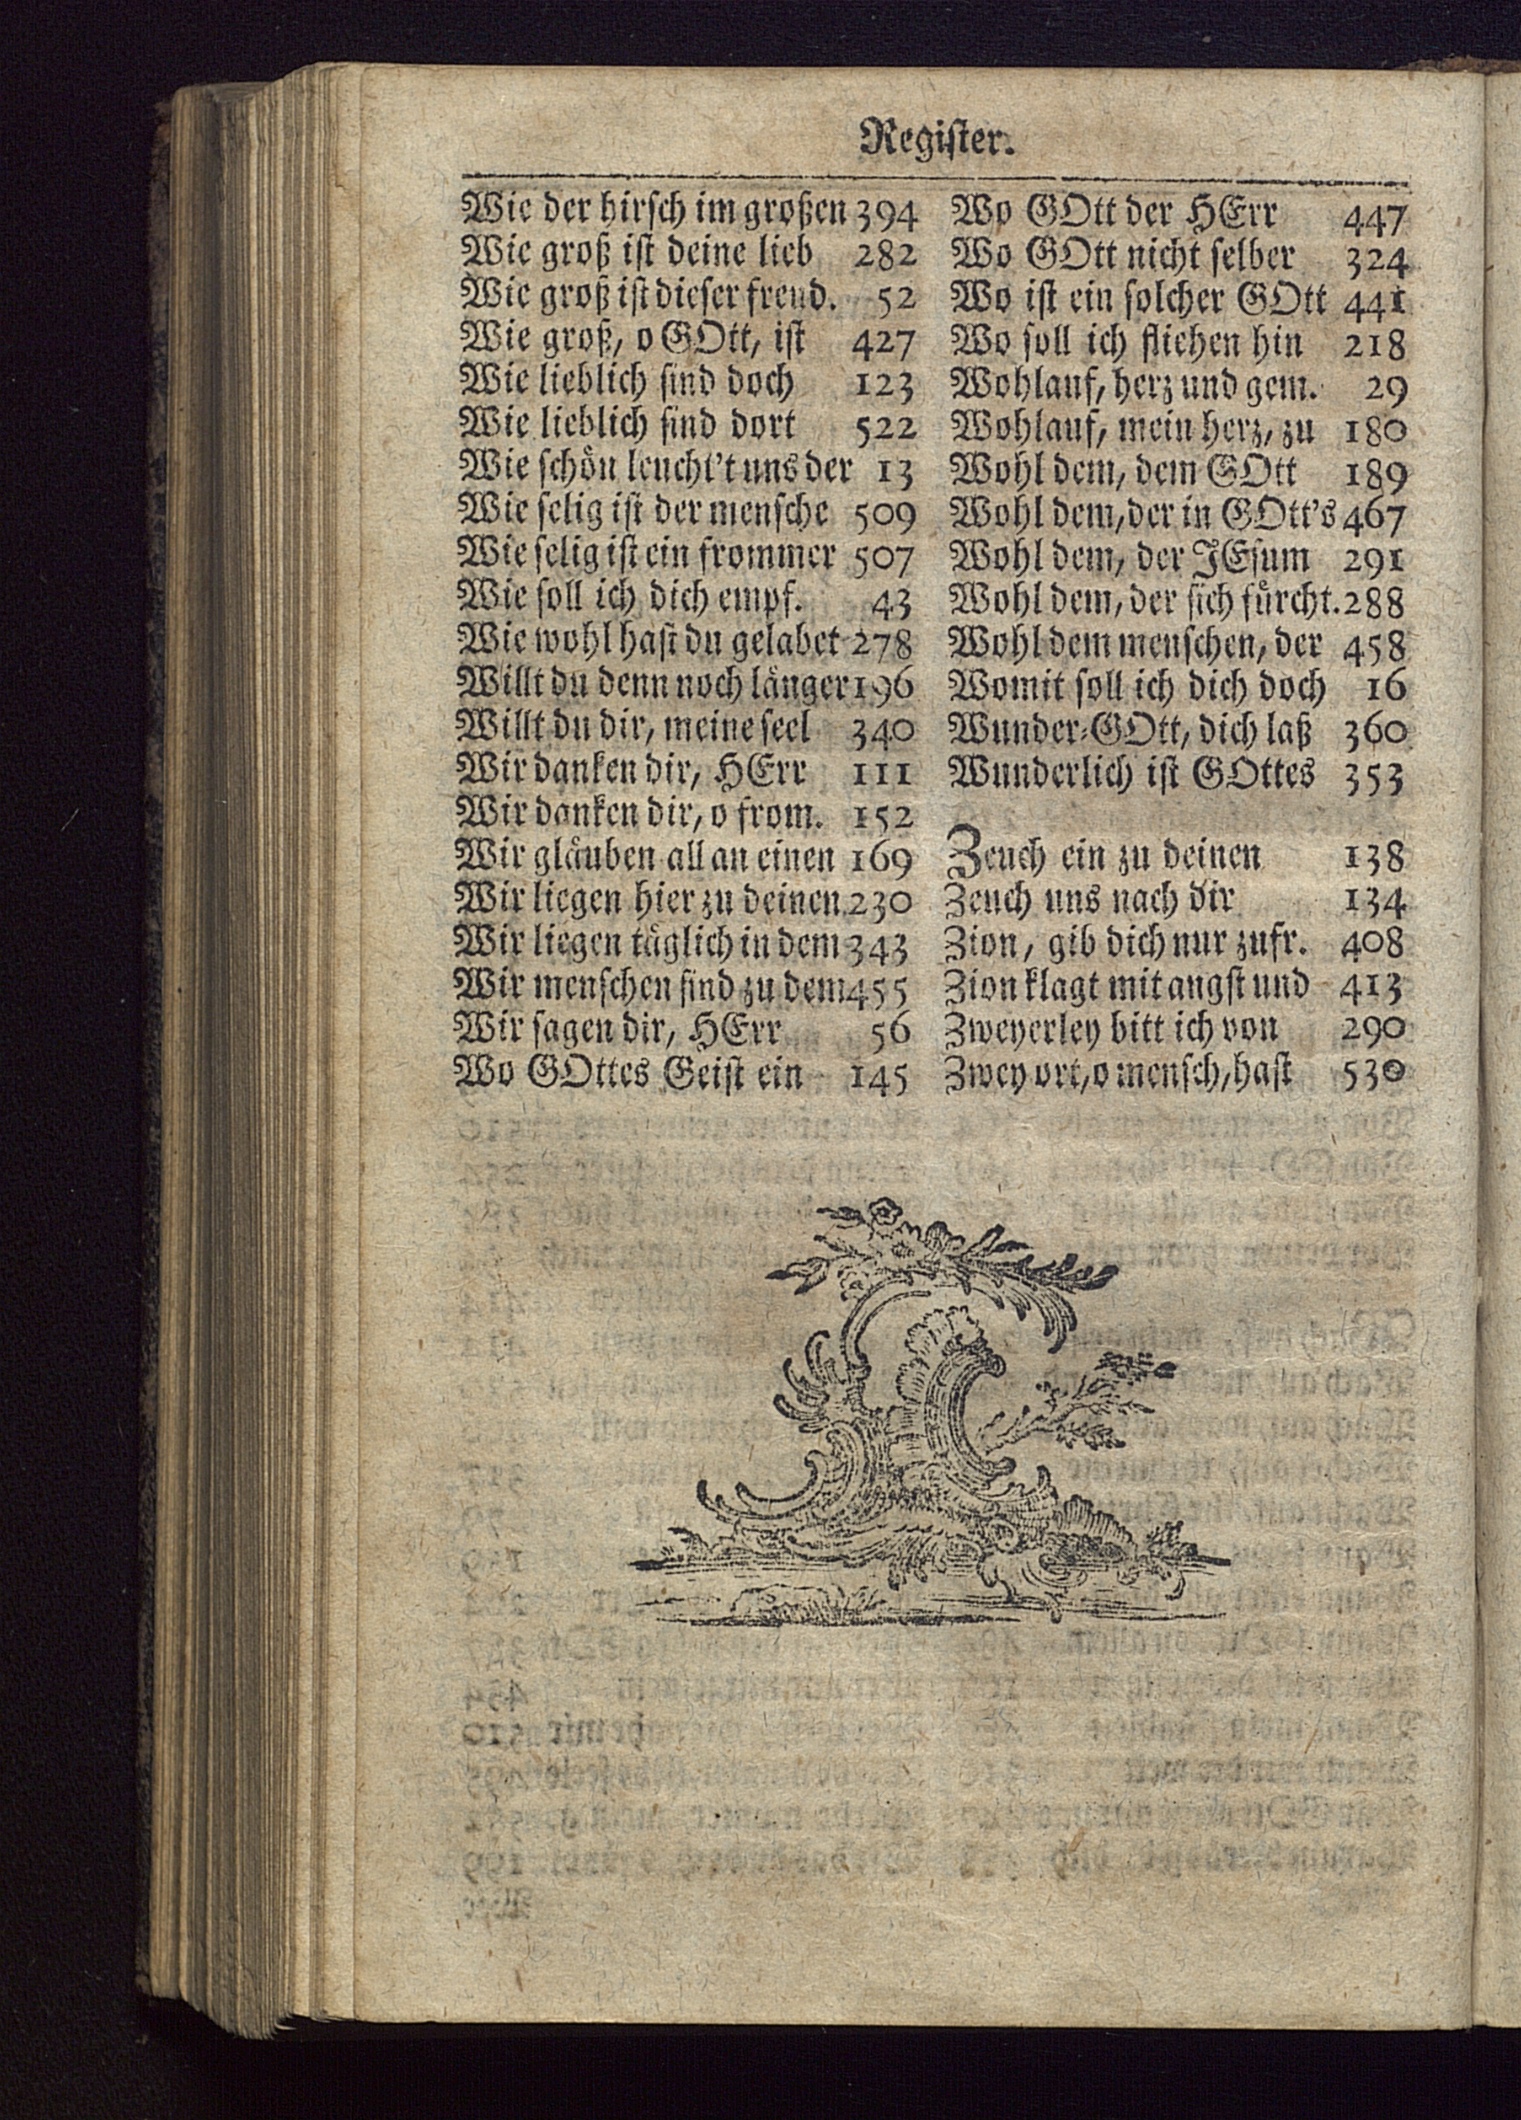 Register.
Wie der hirsch im großen 394
Wie groß ist deine lieb 282
Wie groß ist dieser freud. 52
Wie groß, o GOtt, ist 427
Wie lieblich sind doch 123
Wie lieblich sind dort 522
Wie schön leucht't uns der 13
Wie selig ist der mensche 509
Wie selig ist ein frommer 507
Wie soll ich dich empf. 43
Wie wohl hast du gelabet 278
Willt du denn noch länger 196
Willt du dir, meine seel 340
Wir danken dir, HErr 111
Wir danken dir, o from. 152
Wir gläuben all an einen 169
Wir liegen hier zu deinen 230
Wir liegen täglich in dem 343
Wir menschen sind zu dem 455
Wir sagen dir, HErr 56
Wo GOttes Geist ein 145
Wo GOtt der HErr 447
Wo GOtt nicht selber 324
Wo ist ein solcher GOtt 441
Wo soll ich fliehen hin 218
Wohlauf, herz und gem. 29
Wohlauf, mein herz, zu 180
Wohl dem, dem GOtt 189
Wohl dem, der in GOtt's 467
Wohl dem, der JEsum 291
Wohl dem, der sich fürcht. 288
Wohl dem menschen, der 458
Womit soll ich dich doch 16
Wunder-GOtt, dich laß 360
Wunderlich ist GOttes 353
Zeuch ein zu deinen 138
Zeuch uns nach dir 134
Zion, gib dich nur zufr. 408
Zion klagt mit angst und 413
Zweyerley bitt ich von 290
Zwey ort, o mensch, hast 530